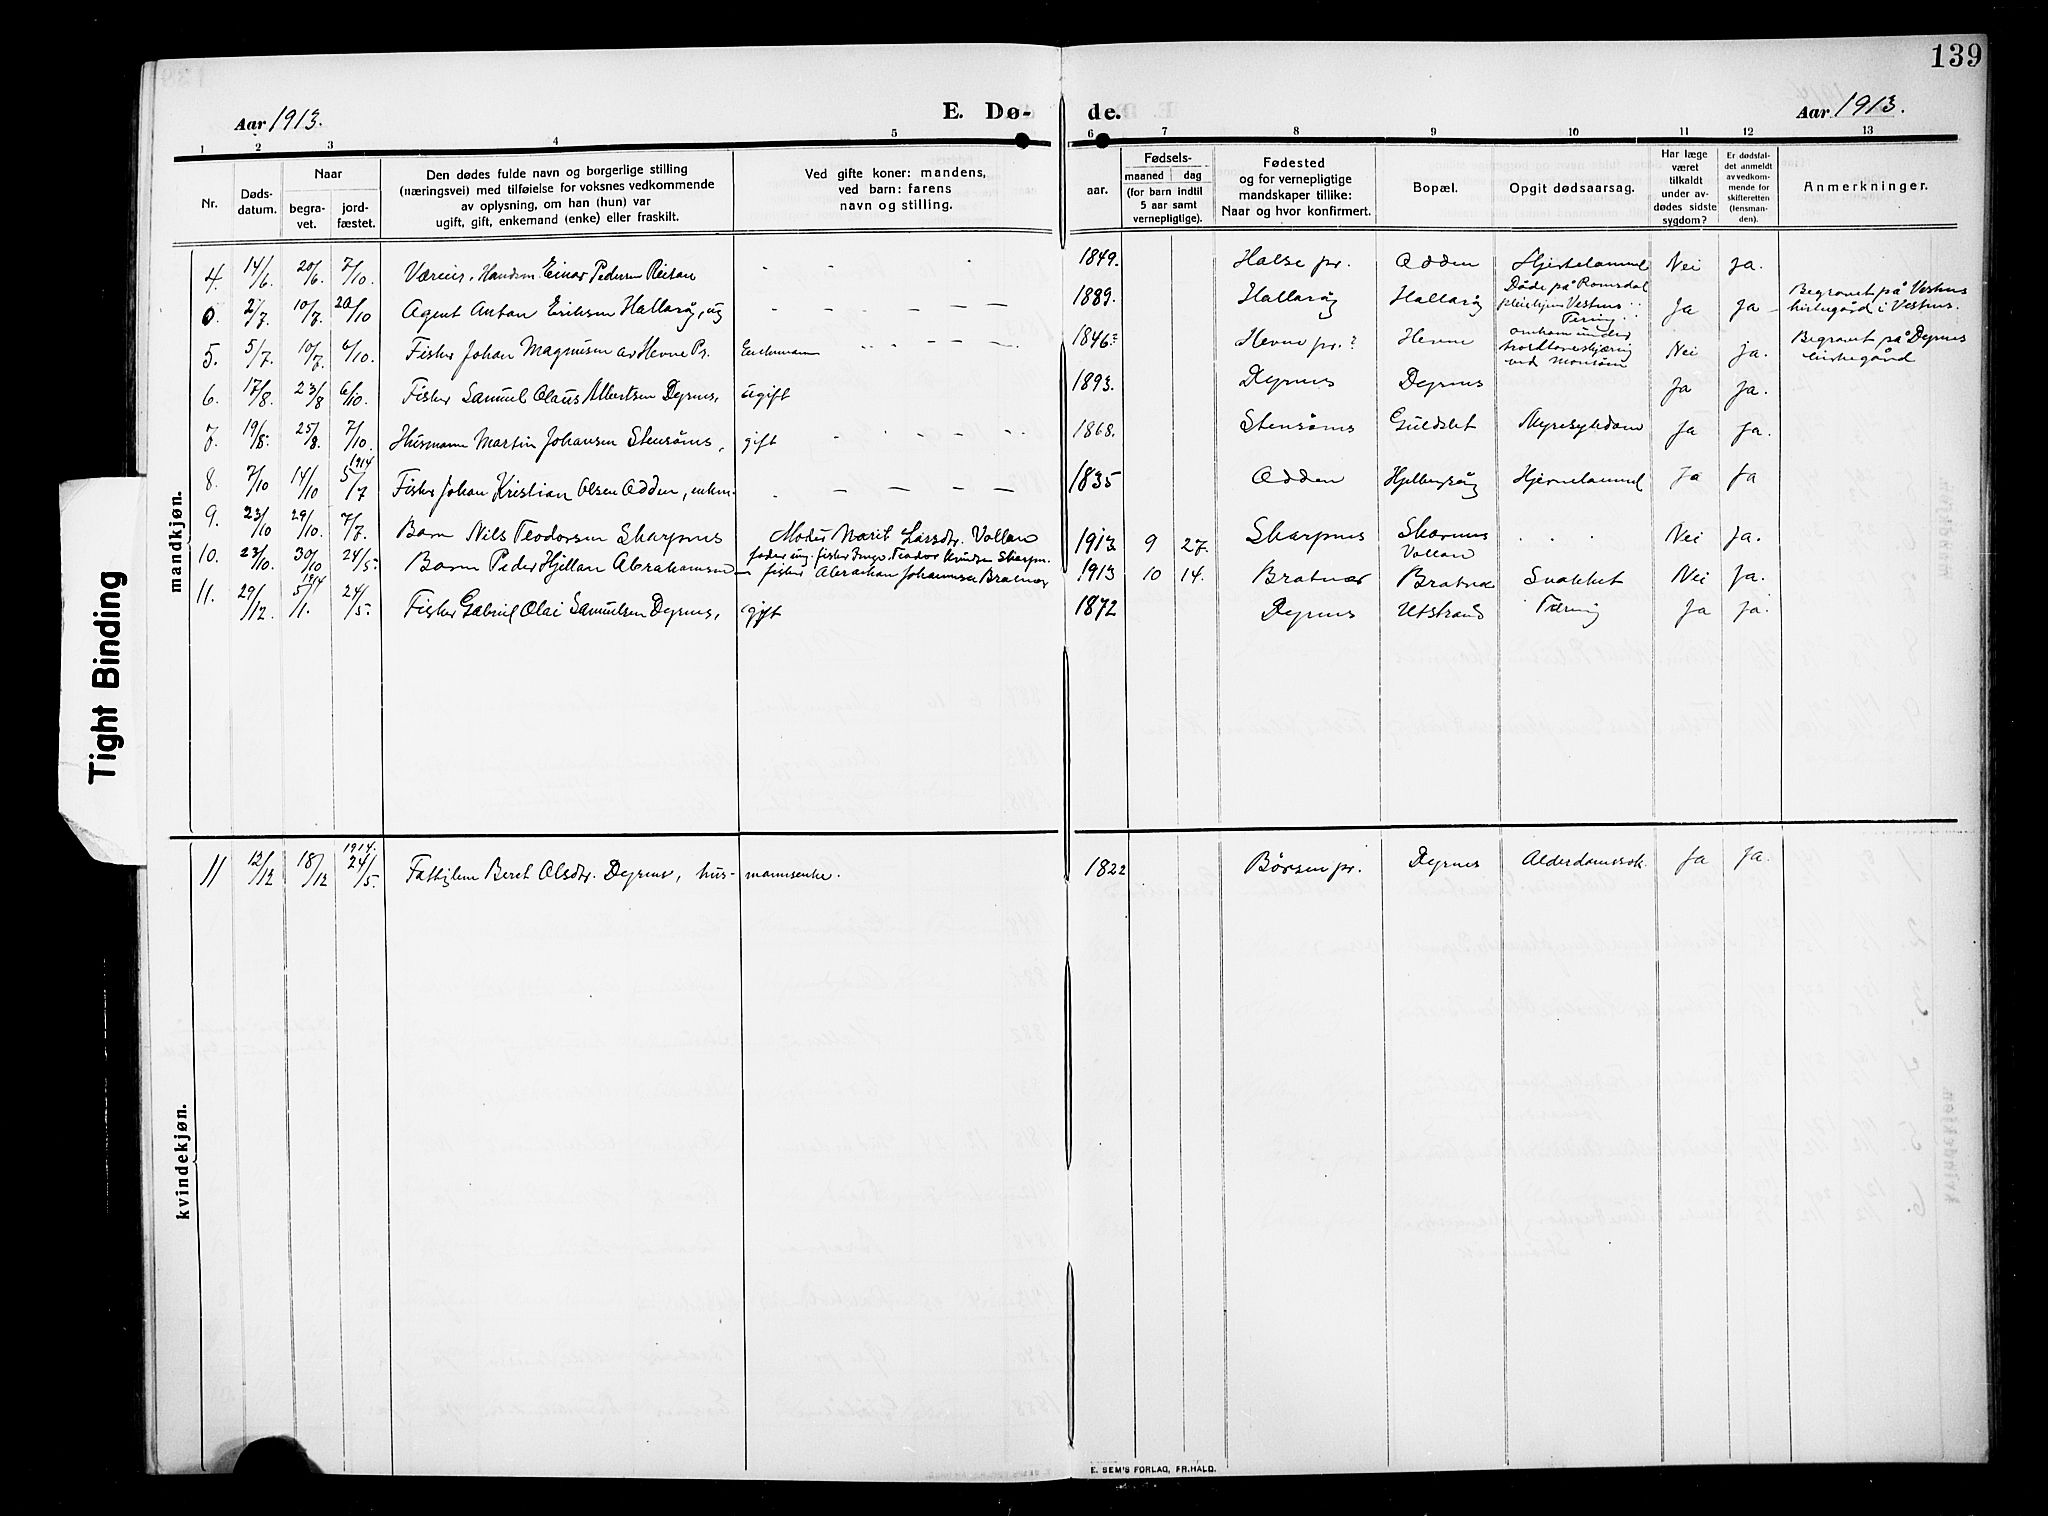 139
Aar 1913.
E. Dø-
de.
Aar 1913.
1 2 3 4 5 6 7 8 9 10 11 12 13
Nr.
Døds-
datum.
Naar
begra-
vet.
jord-
fæstet.
Den dødes fulde navn og borgerlige stilling
(næringsvei) med tilføielse for voksnes vedkommende
av oplysning, om han (hun) var
ugift, gift, enkemand (enke) eller fraskilt.
Ved gifte koner: mandens,
ved barn: farens
navn og stilling.
aar.
Fødsels-
maaned dag
(for barn indtil
5 aar samt
vernepligtige).
Fødested
og for vernepligtige
mandskaper tillike:
Naar og hvor konfirmert.
Bopæl.
Opgit dødsaarsag.
Har læge
været
tilkaldt
under av-
dødes sidste
sygdom?
Er dødsfal-
det anmeldt
av vedkom-
mende for
skifteretten
(lensman-
den).
Anmerkninger.
mandkjøn.
4. 14/6. 20/6. 7/10 Einar Pedersen 1849. Halse pr. Odden Nei Ja.
0. 2/7. 10/7. 20/10 Agent Anton Eriksen Hallarøy, ug 1889. Hallarøy Hallarøy Døde på Romsdal Vestnes Tæring Ja Ja Begravet på Vestnes
kirkegård i Vestnes.
5. 5/7. 10/7. 6/10. Fisker Johan Magnusen av Hevne Pr. Enkemann 1846? Hevne pr.? Hevne omkom under
ved Nei ja. Begravet på Dyrnes
kirkegård
6. 17/8. 23/8 6/10. Fisker Samuel Olaus Albertsen Dyrnes, ugift 1893. Dyrnes Dyrnes Ja Ja.
7. 19/8. 25/8. 7/10. Husmann Martin Johansen Stensønes, gift 1868. Stensønes Guldslet Nyresykdom Ja Ja.
8. 7/10 14/10 1914 5/7 Fisker Johan Kristian Olsen Odden, enkm. 1835 Odden Ja Ja
9. 23/10 29/10. 7/7. Barn Nils Teodorsen Skarpnes Moder Marit Larsdtr. Vollan
fader ung. fisker Teodor Knudsen Skarpn. 1913 9 27. Skarpnes Vollan Nei Ja.
10. 23/10. 30/10 24/5. Barn Peder Hjillan Abrahamsen fisker Abraham Johannesen Bratvær 1913 10 14. Bratvær Bratvær Nei Ja.
11. 29/12. 1914 5/1. 24/5. Fisker Gabriel Olai Samuelsen Dyrnes, gift 1872 Dyrnes Utstrand Tæring Ja ja.
kvindekjøn.
11 12/12 18/12 1914. 24/5. Fattiglem Beret Olsdtr. Dyrnes, husmannsenke. 1822 Børsen pr. Dyrnes Alderdomssvak. Ja Ja.
E. SEM'S FORLAG, FR.HALD.
Tight Binding